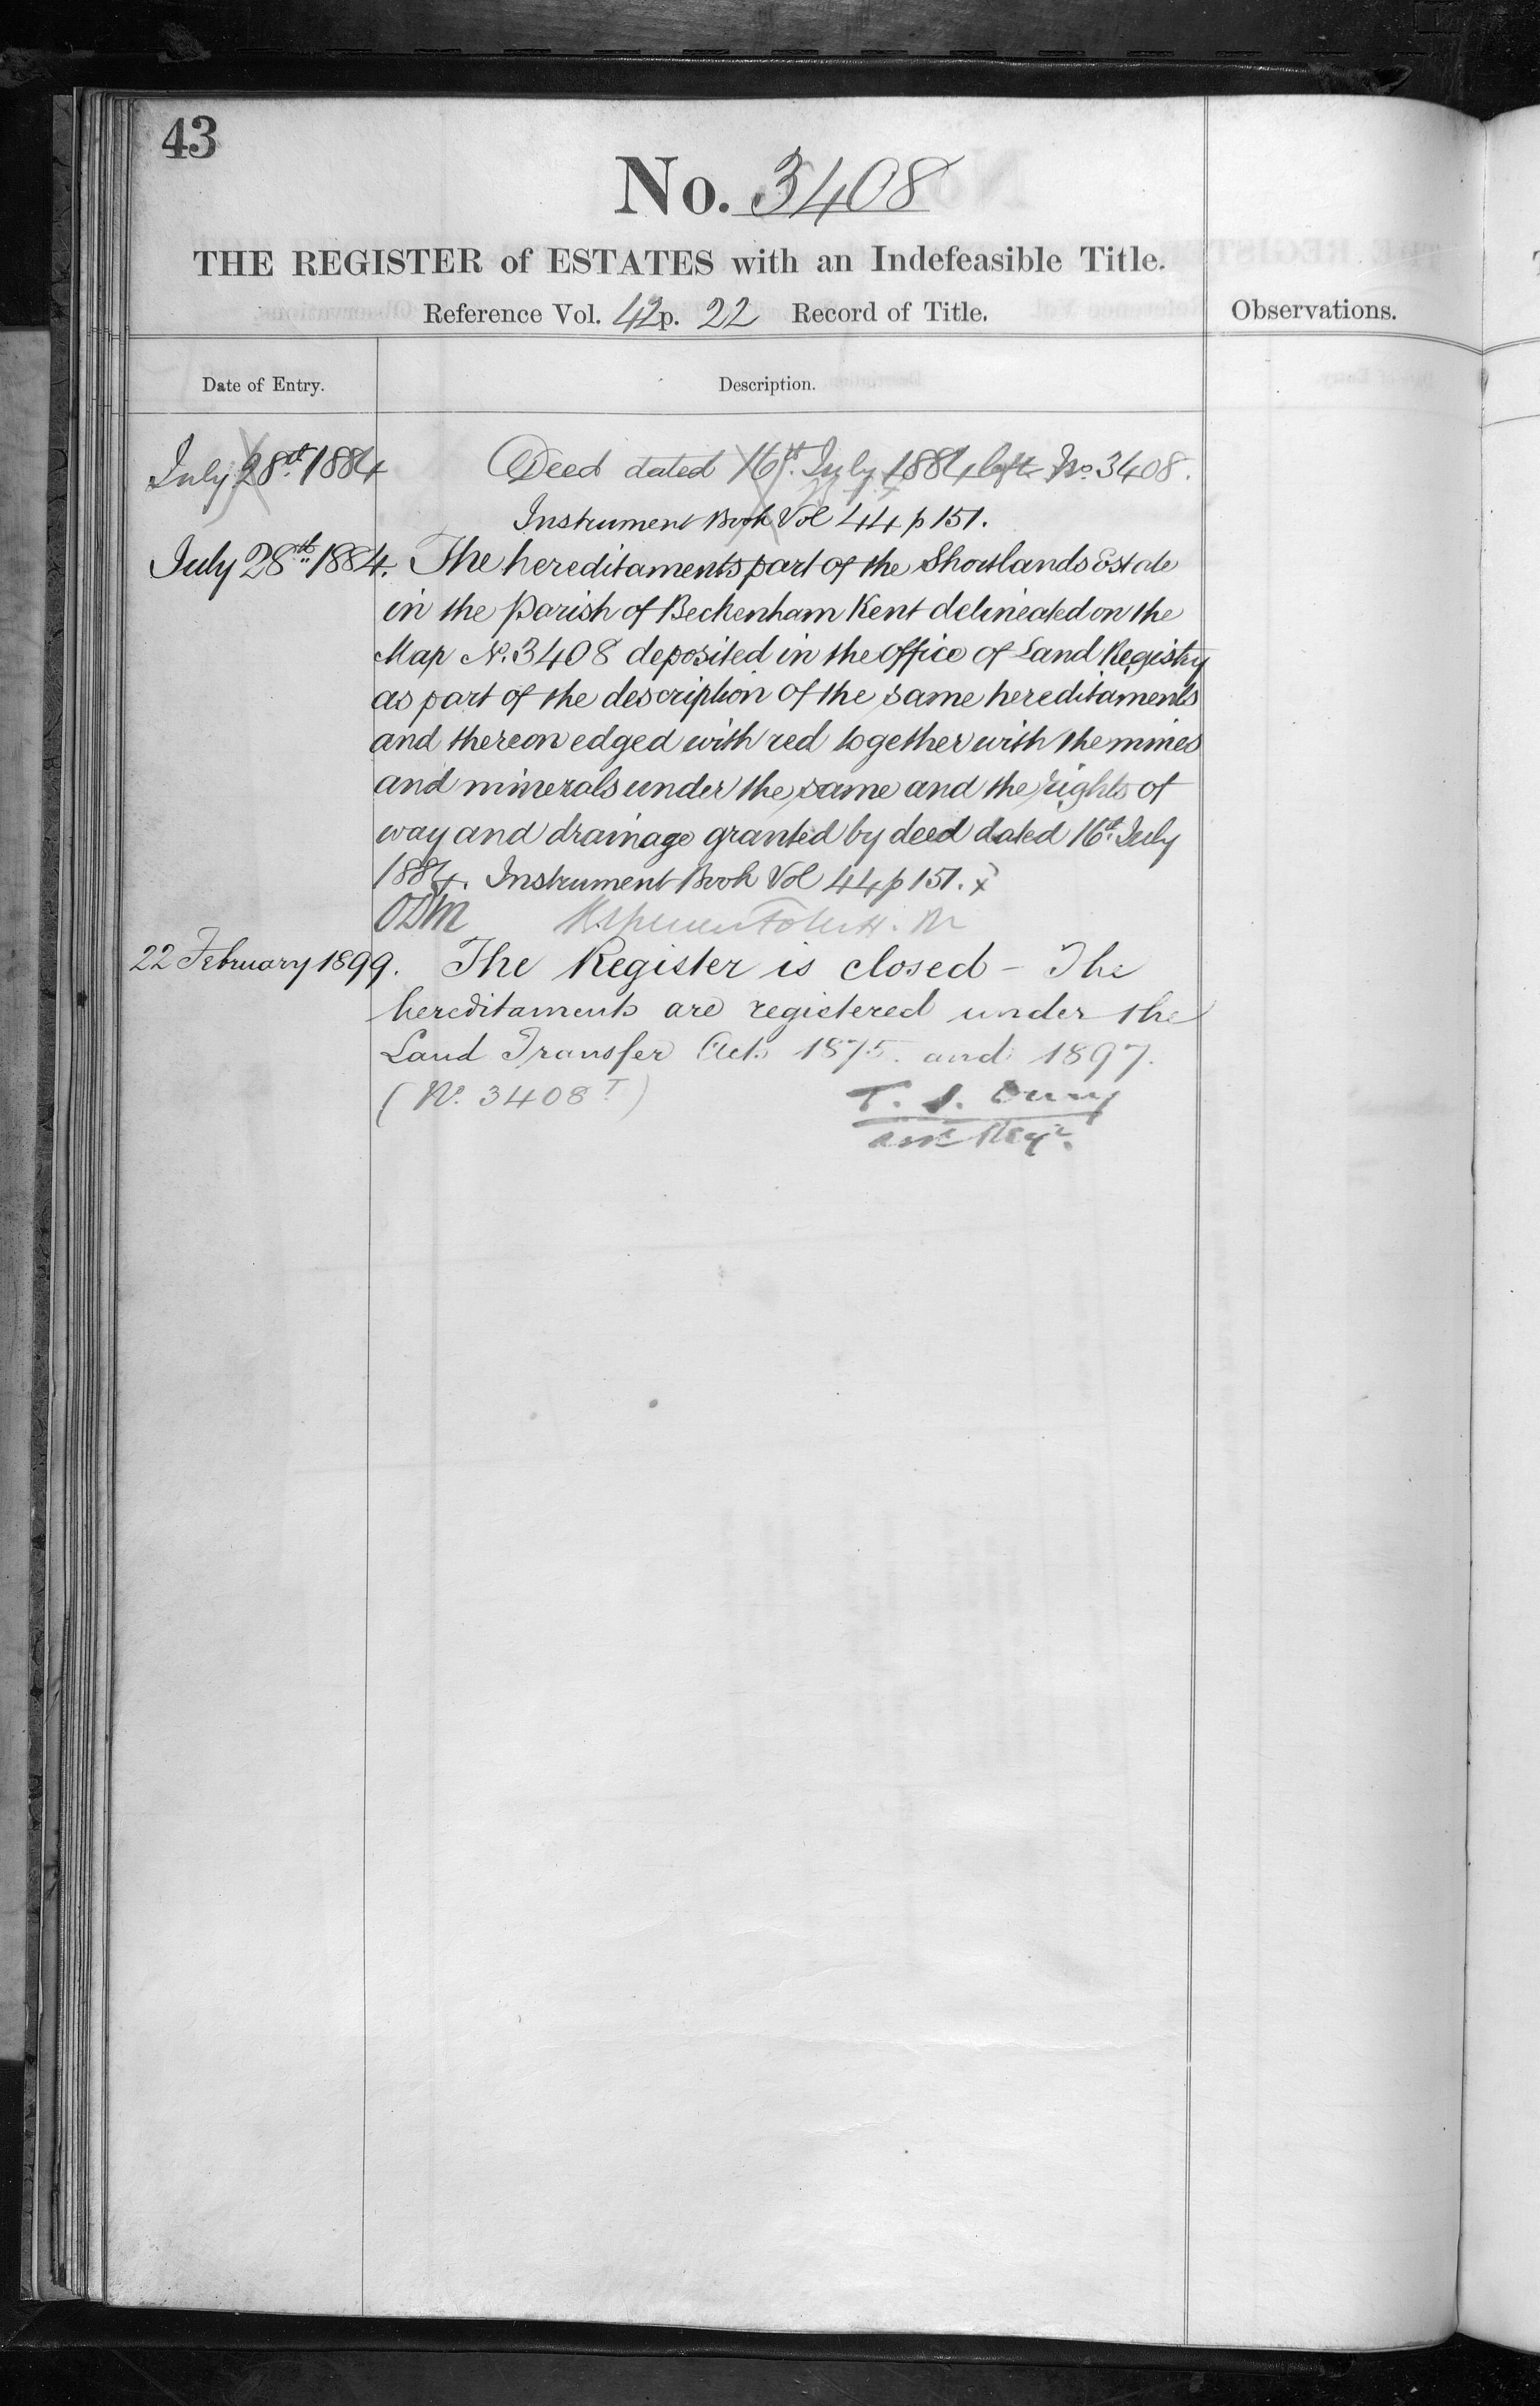 43
No. 3408
THE REGISTER of ESTATES with an Indefeasible Title.
Reference Vol. 42 p. 22 Record of Title.
Observations.
Date of Entry.
Description.
July 28th 1884
Deed dated 16th July 1884 left No. 3408.
Instrument Book Vol 44 p 151.
July 28th 1884. The hereditaments part of the Shortlands Estate
in the Parish of Beckenham Kent delineated on the
Map No. 3408 deposited in the Office of Land Registry
as part of the description of the same hereditaments
and thereon edged with red together with the mines
and minerals under the same and the rights of
way and drainage granted by deed dated 16th July
1884. Instrument Book Vol 44 p 151. x
ODM
22 February 1899. The Register is closed - The
hereditaments are registered under the
Land Transfer Acts 1875 and 1897.
(No. 3408 T)
Asst Regr.